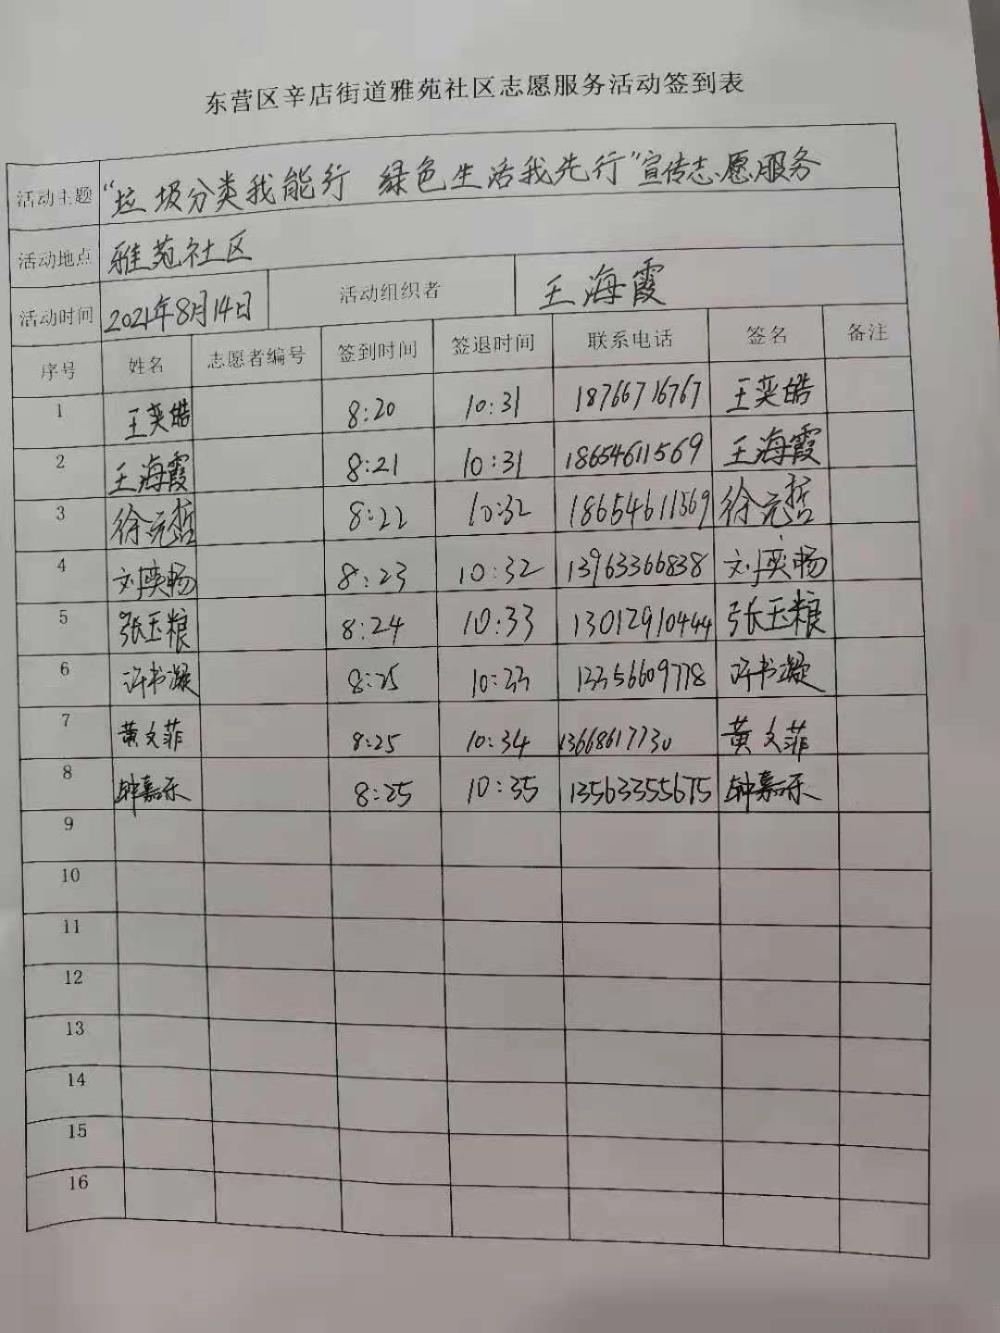 东营区辛店街道雅苑社区志愿服务活动签到表
活动主题 “垃圾分类我能行 绿色生活我先行”宣传志愿服务
活动地点 雅苑社区
活动时间 2021年8月14日 活动组织者 王海霞
序号 姓名 志愿者编号 签到时间 签退时间 联系电话 签名 备注
1 王奕皓 8:20 10:31 18766716767 王奕皓
2 王海霞 8:21 10:31 18654611569 王海霞
3 徐元哲 8:22 10:32 18654611569 徐元哲
4 刘奕畅 8:23 10:32 13963366838 刘奕畅
5 张玉粮 8:24 10:33 13012910444 张玉粮
6 许书凝 8:25 10:33 13356609778 许书凝
7 黄文菲 8:25 10:34 13668617730 黄文菲
8 钟嘉乐 8:25 10:35 13563355675 钟嘉乐
9
10
11
12
13
14
15
16